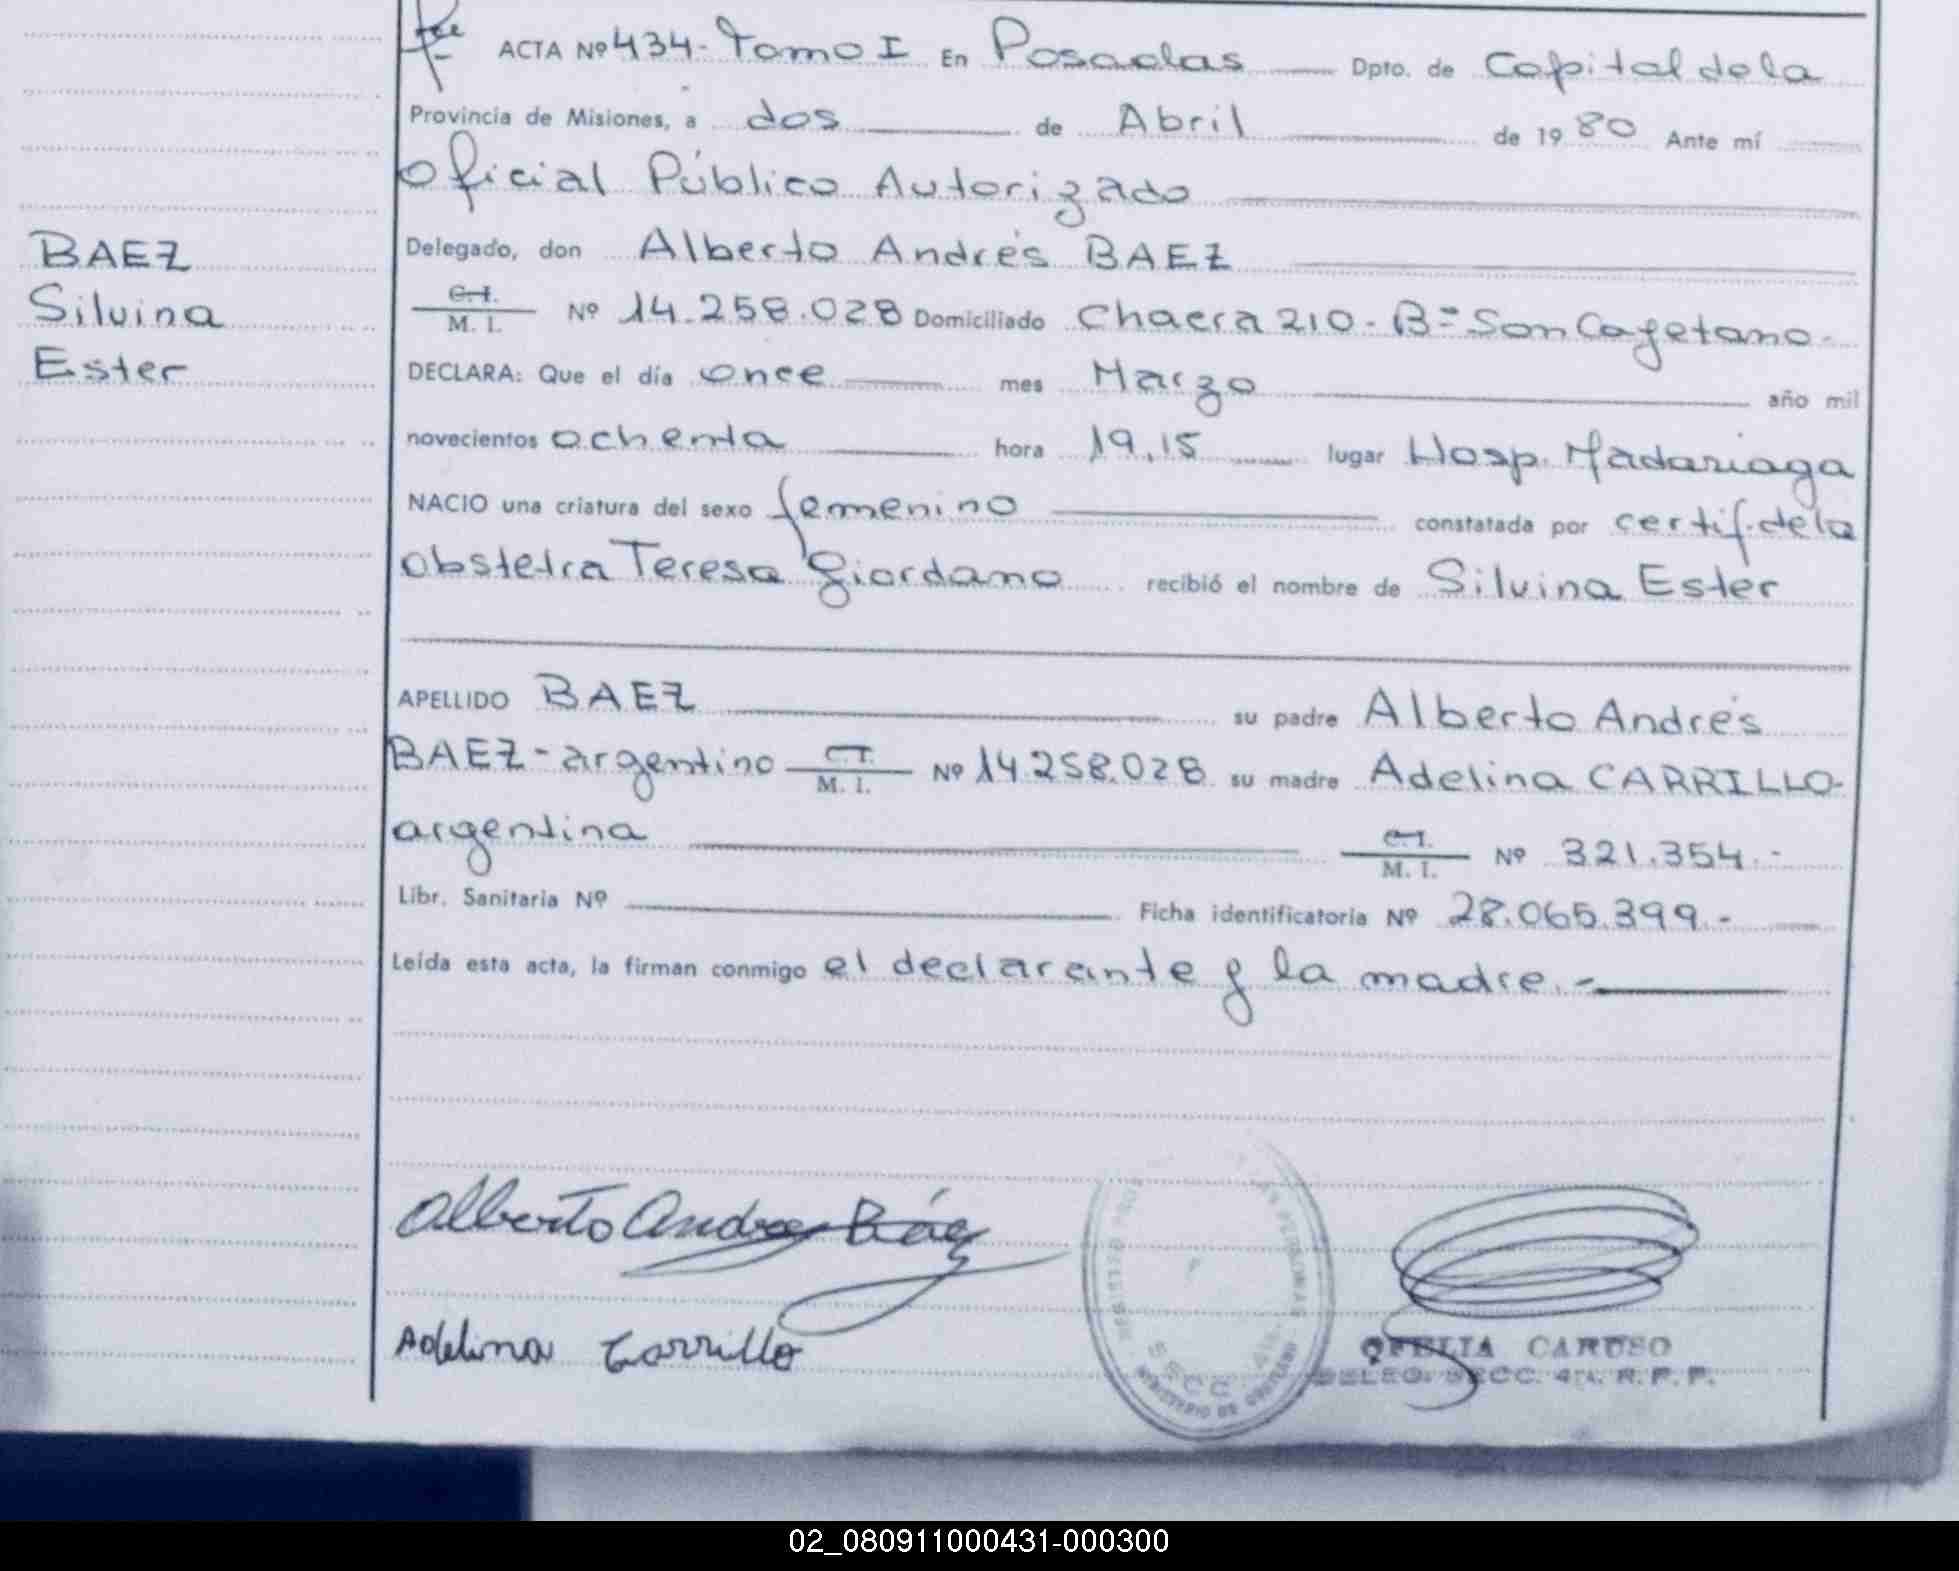 BAEZ
Silvina
Ester
ACTA Nº 434- Tomo I En Posadas Dpto. de Capital de la
Provincia de Misiones, a dos de Abril de 1980 Ante mí
Oficial Público Autorizado
Delegado, don Alberto Andrés BAEZ
C.I.
M. I. Nº 14.258.028 Domiciliado Chacra 210 - Bº San Cayetano.-
DECLARA: Que el día once mes Marzo año mil
novecientos ochenta hora 19,15 lugar Hosp. Madariaga
NACIO una criatura del sexo femenino constatada por certif. de la
obstetra Teresa Giordano recibió el nombre de Silvina Ester
APELLIDO BAEZ su padre Alberto Andrés
BAEZ - argentino C.I. M. I. Nº 14.258.028 su madre Adelina CARRILLO-
argentina C.I. M. I. Nº 321.354.-
Libr. Sanitaria Nº Ficha identificatoria Nº 28.065.399.-
Leída esta acta, la firman conmigo el declarante y la madre.-
Alberto Andres Báez
Adelina Carrillo
MINISTERIO DE GOBIERNO
OFELIA CARUSO
DELEG. SECC. 4ta. R. P. P.
02_080911000431-000300